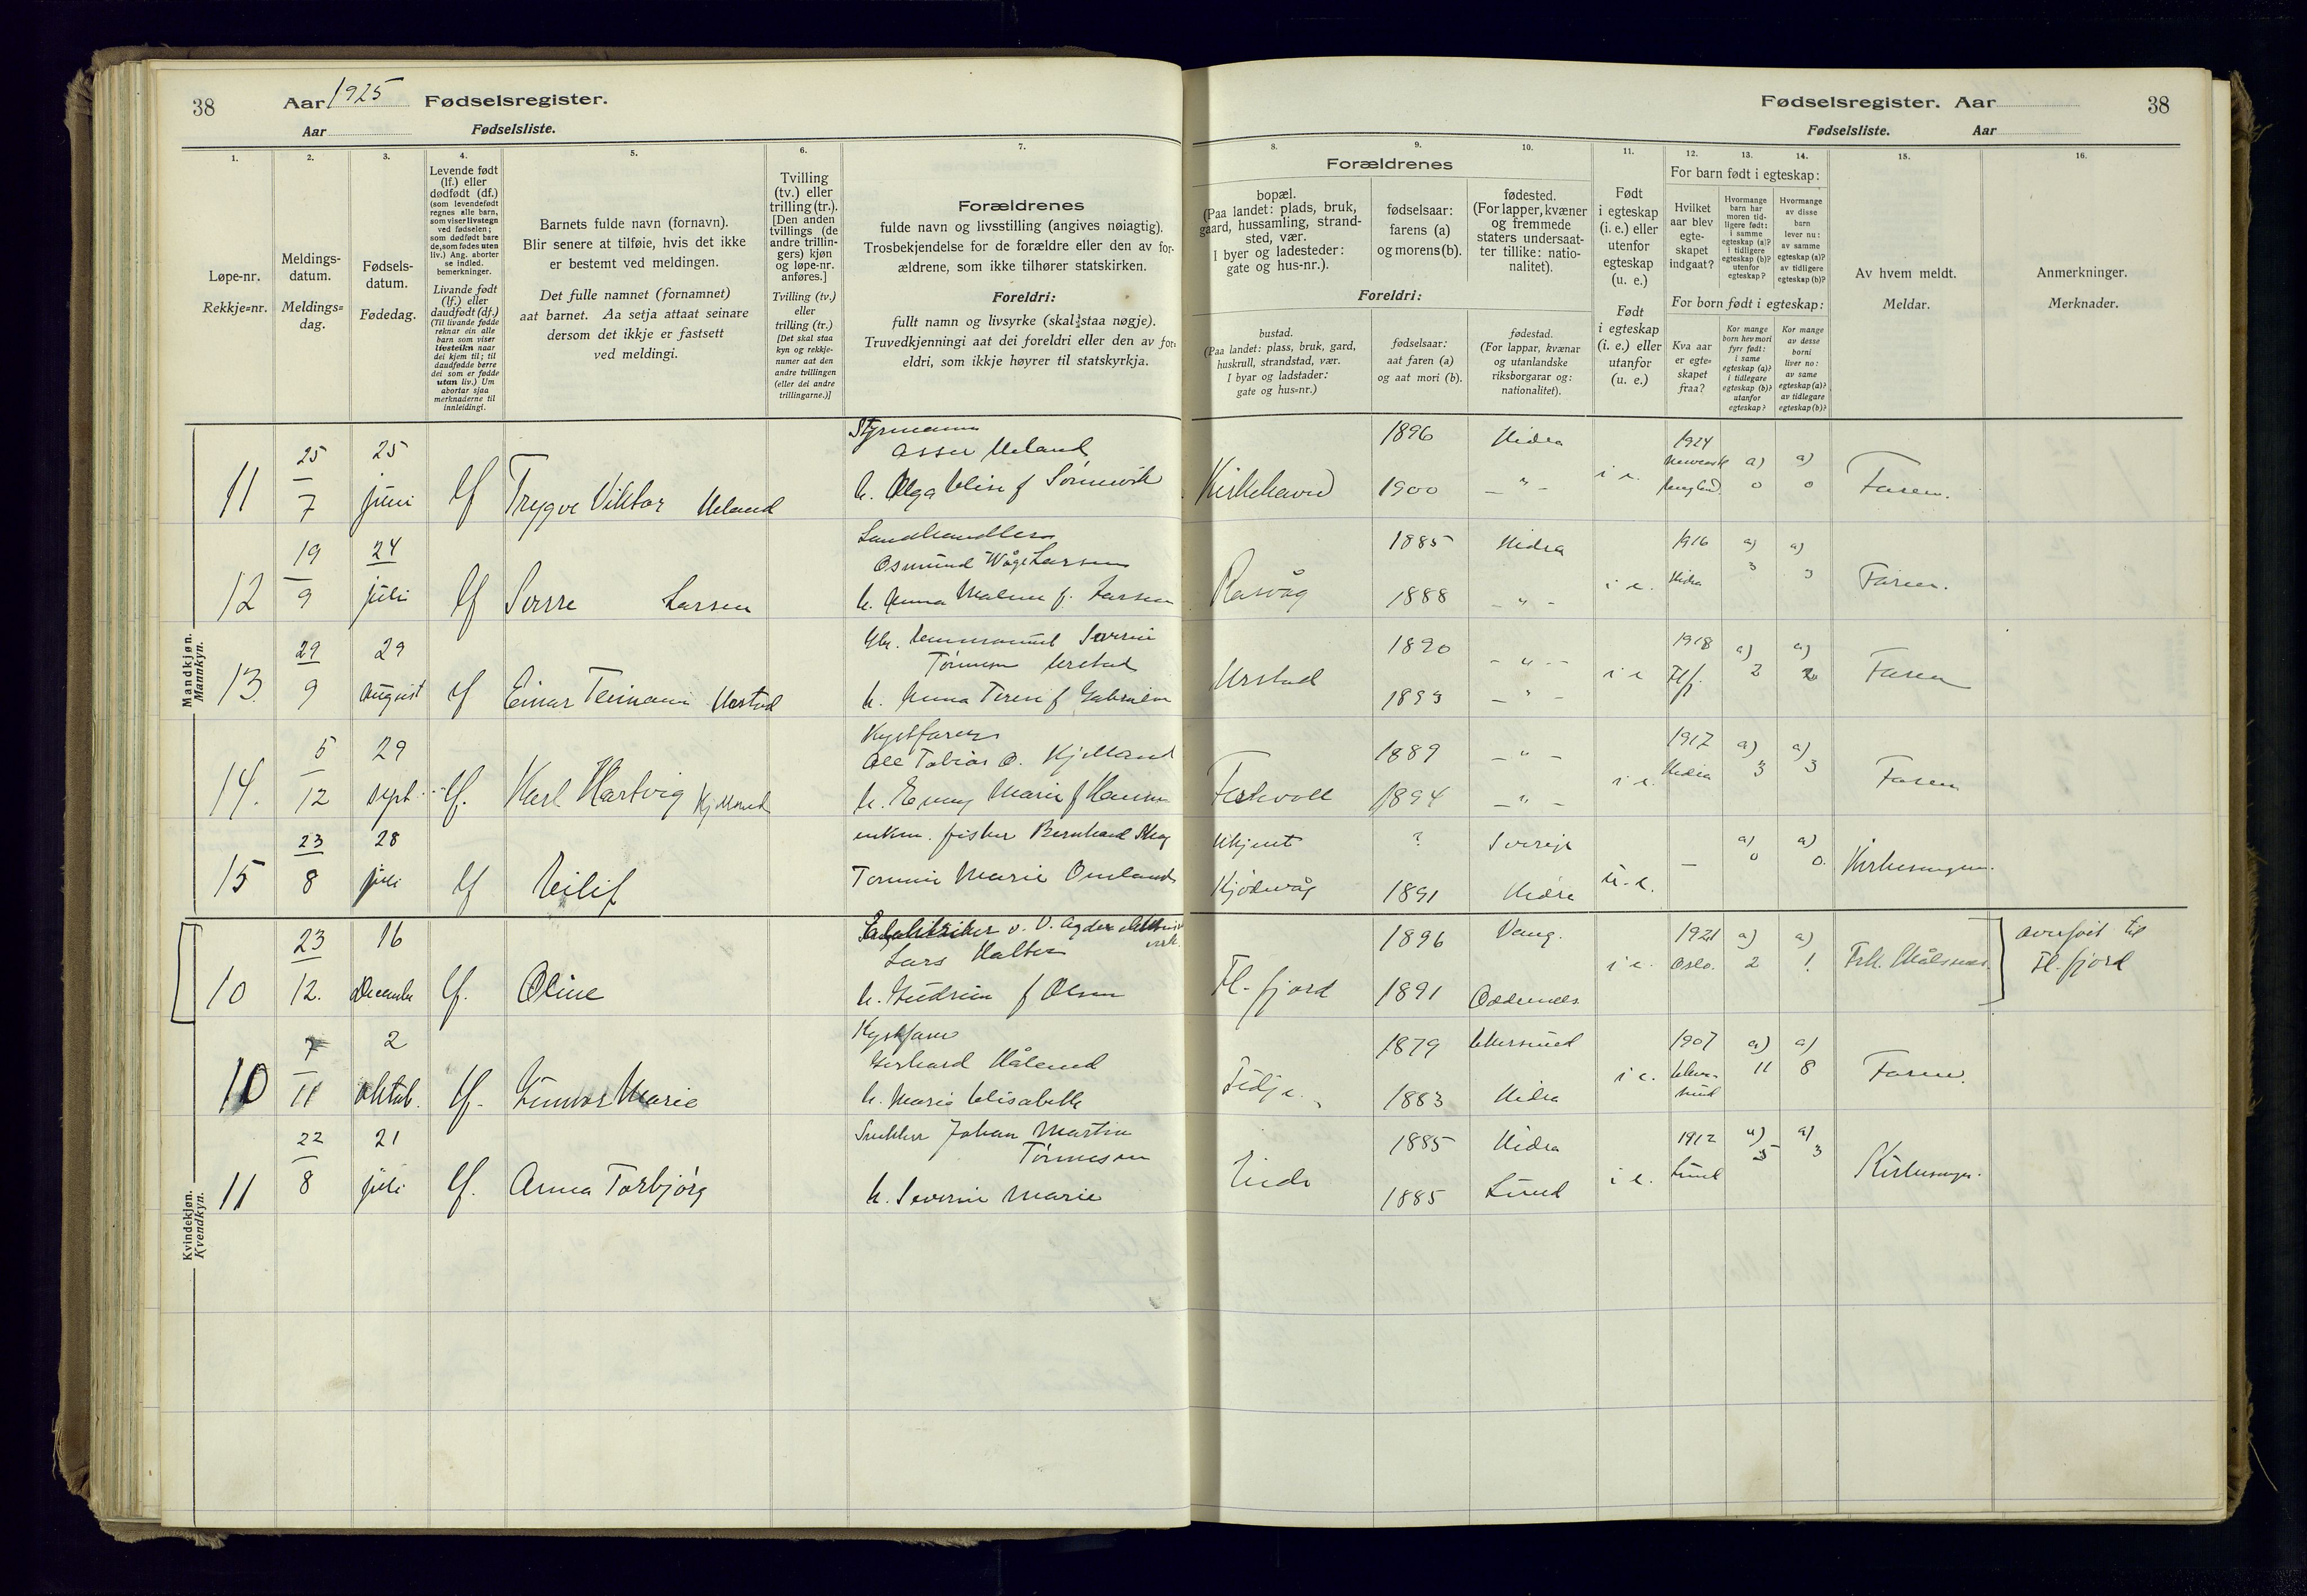 38 Aar 1925 Fødselsregister.
Aar Fødselsliste.
Fødselsregister. Aar 38
Fødselsliste. Aar
1. 2. 3. 4. 5. 6. 7. 8. 9. 10. 11. 12. 13. 14. 15. 16.
Løpe-nr.
Rekkje-nr.
Meldings-
datum.
Meldings-
dag.
Fødsels-
datum.
Fødedag.
Levende født
(lf.) eller
dødfødt (df.)
(som levendefødt
regnes alle barn,
som viser livstegn
ved fødselen;
som dødfødt bare
de, som fødes uten
liv.) Ang. aborter
se indled.
bemerkninger.
Livande født
(lf.) eller
daudfødt (df.)
(Til livande fødde
reknar ein alle
barn som viser
livsteikn naar
dei kjem til; til
daudfødde berre
dei som er fødde
utan liv.) Um
abortar sjaa
merknaderne til
innleidingi.
Barnets fulde navn (fornavn).
Blir senere at tilføie, hvis det ikke
er bestemt ved meldingen.
Det fulle namnet (fornamnet)
aat barnet. Aa setja attaat seinare
dersom det ikkje er fastsett
ved meldingi.
Tvilling
(tv.) eller
trilling (tr.).
[Den anden
tvillings (de
andre trillin-
gers) kjøn
og løpe-nr.
anføres.]
Tvilling (tv.)
eller
trilling (tr.)
[Det skal staa
kyn og rekkje-
numer aat den
andre tvillingen
(eller dei andre
trillingarne.)]
Forældrenes
fulde navn og livsstilling (angives nøiagtig).
Trosbekjendelse for de forældre eller den av for-
ældrene, som ikke tilhører statskirken.
Foreldri:
fullt namn og livsyrke (skal staa nøgje).
Truvedkjenningi aat dei foreldri eller den av for-
eldri, som ikkje høyrer til statskyrkja.
Forældrenes
bopæl.
(Paa landet: plads, bruk,
gaard, hussamling, strand-
sted, vær.
I byer og ladesteder:
gate og hus-nr.).
fødselsaar:
farens (a)
og morens (b).
fødested.
(For lapper, kvæner
og fremmede
staters undersaat-
ter tillike: natio-
nalitet).
Foreldri:
bustad.
(Paa landet: plass, bruk, gard,
huskrull, strandstad, vær.
I byar og ladstader:
gate og hus-nr.)
fødselsaar:
aat faren (a)
og aat mori (b).
fødestad.
(For lappar, kvænar
og utanlandske
riksborgarar og:
nationalitet).
Født
i egteskap
(i. e.) eller
utenfor
egteskap
(u. e.)
Født
i egteskap
(i. e.) eller
utanfor
(u. e.)
For barn født i egteskap:
Hvilket
aar blev
egte-
skapet
indgaat?
Hvormange
barn har
moren tid-
ligere født:
i samme
egteskap (a)?
i tidligere
egteskap (b)?
utenfor
egteskap?
Hvormange
av disse
barn
lever nu:
av samme
egteskap (a)?
av tidligere
egteskap (b)?
For born født i egteskap:
Kva aar
er egte-
skapet
fraa?
Kor mange
born hev mori
fyrr født:
i same
egteskap (a)?
i tidlegare
egteskap (b)?
utanfor
egteskap?
Kor mange
av desse
borni
liver no:
av same
egteskap (a)?
av tidlegare
egteskap (b)?
Av hvem meldt.
Meldar.
Anmerkninger.
Merknader.
Mandkjøn.
Mannkyn.
11 25/7 25 juni lf Trygve Viktor Ueland
Styrmann
Asser Ueland
h. Olga Elise f Sørnevik
Kirkehavn 1896 Hidra
1900 – " –
i e. 1924 a) 0 a) 0 Faren.
12 19/9 24 juli lf Sverre Larsen
Landhandler
Osmund Våge Larsen
h. Anna Malene f. Larsen
Rasvåg 1885 Hidra
1888 – " –
i e. 1916 Hidra a) 3 a) 3 Faren.
13. 29/9 29 August lf Einar Urstad
Urstad
h. Anna f
Urstad 1890 – " –
1893 – " –
i e 1918 Fl.f. a) 2 a) 2 Faren
14. 5/12 29 sept. lf. Karl Hartvig
Kystfarer
Ole Tobias O.
h. Emmy Marie f Hansen
1889 – " –
1894 – " –
i e. 1917 Hidra a) 3 a) 3 Faren
15 23/8 28 juli lf Eilif
enkem. fisker Bernhard
Marie Omland
Ukjent ? Sverige
1891 Hidra
u. e. – a) 0 a) 0.
10 23/12. 16 December lf. Oline
Elektriker v. V. Agder
Lars
h. Gudrun f Olsen
Fl. fjord 1896 Vang.
1891 Oddernes
i e. 1921 Oslo. a) 2 a) 1 Frk.
overført til
Fl. fjord
Kvindekjøn.
Kvendkyn.
10 7/11 2 oktob. lf. Gunvor Marie
Kystfarer
Gerhard Håland
h. Marie Elisabeth
Fidje. 1879 Ekersund
1883 Hidra
i e. 1907 Eker-
sund a) 11 a) 8 Faren.
11 22/8 21 juli lf. Anna Torbjørg
Snekker Johan Martin
Tønnesen
h. Severine Marie
Eide 1885 Hidra
1885 Lund
i e. 1912 Lund a) 5 a) 3